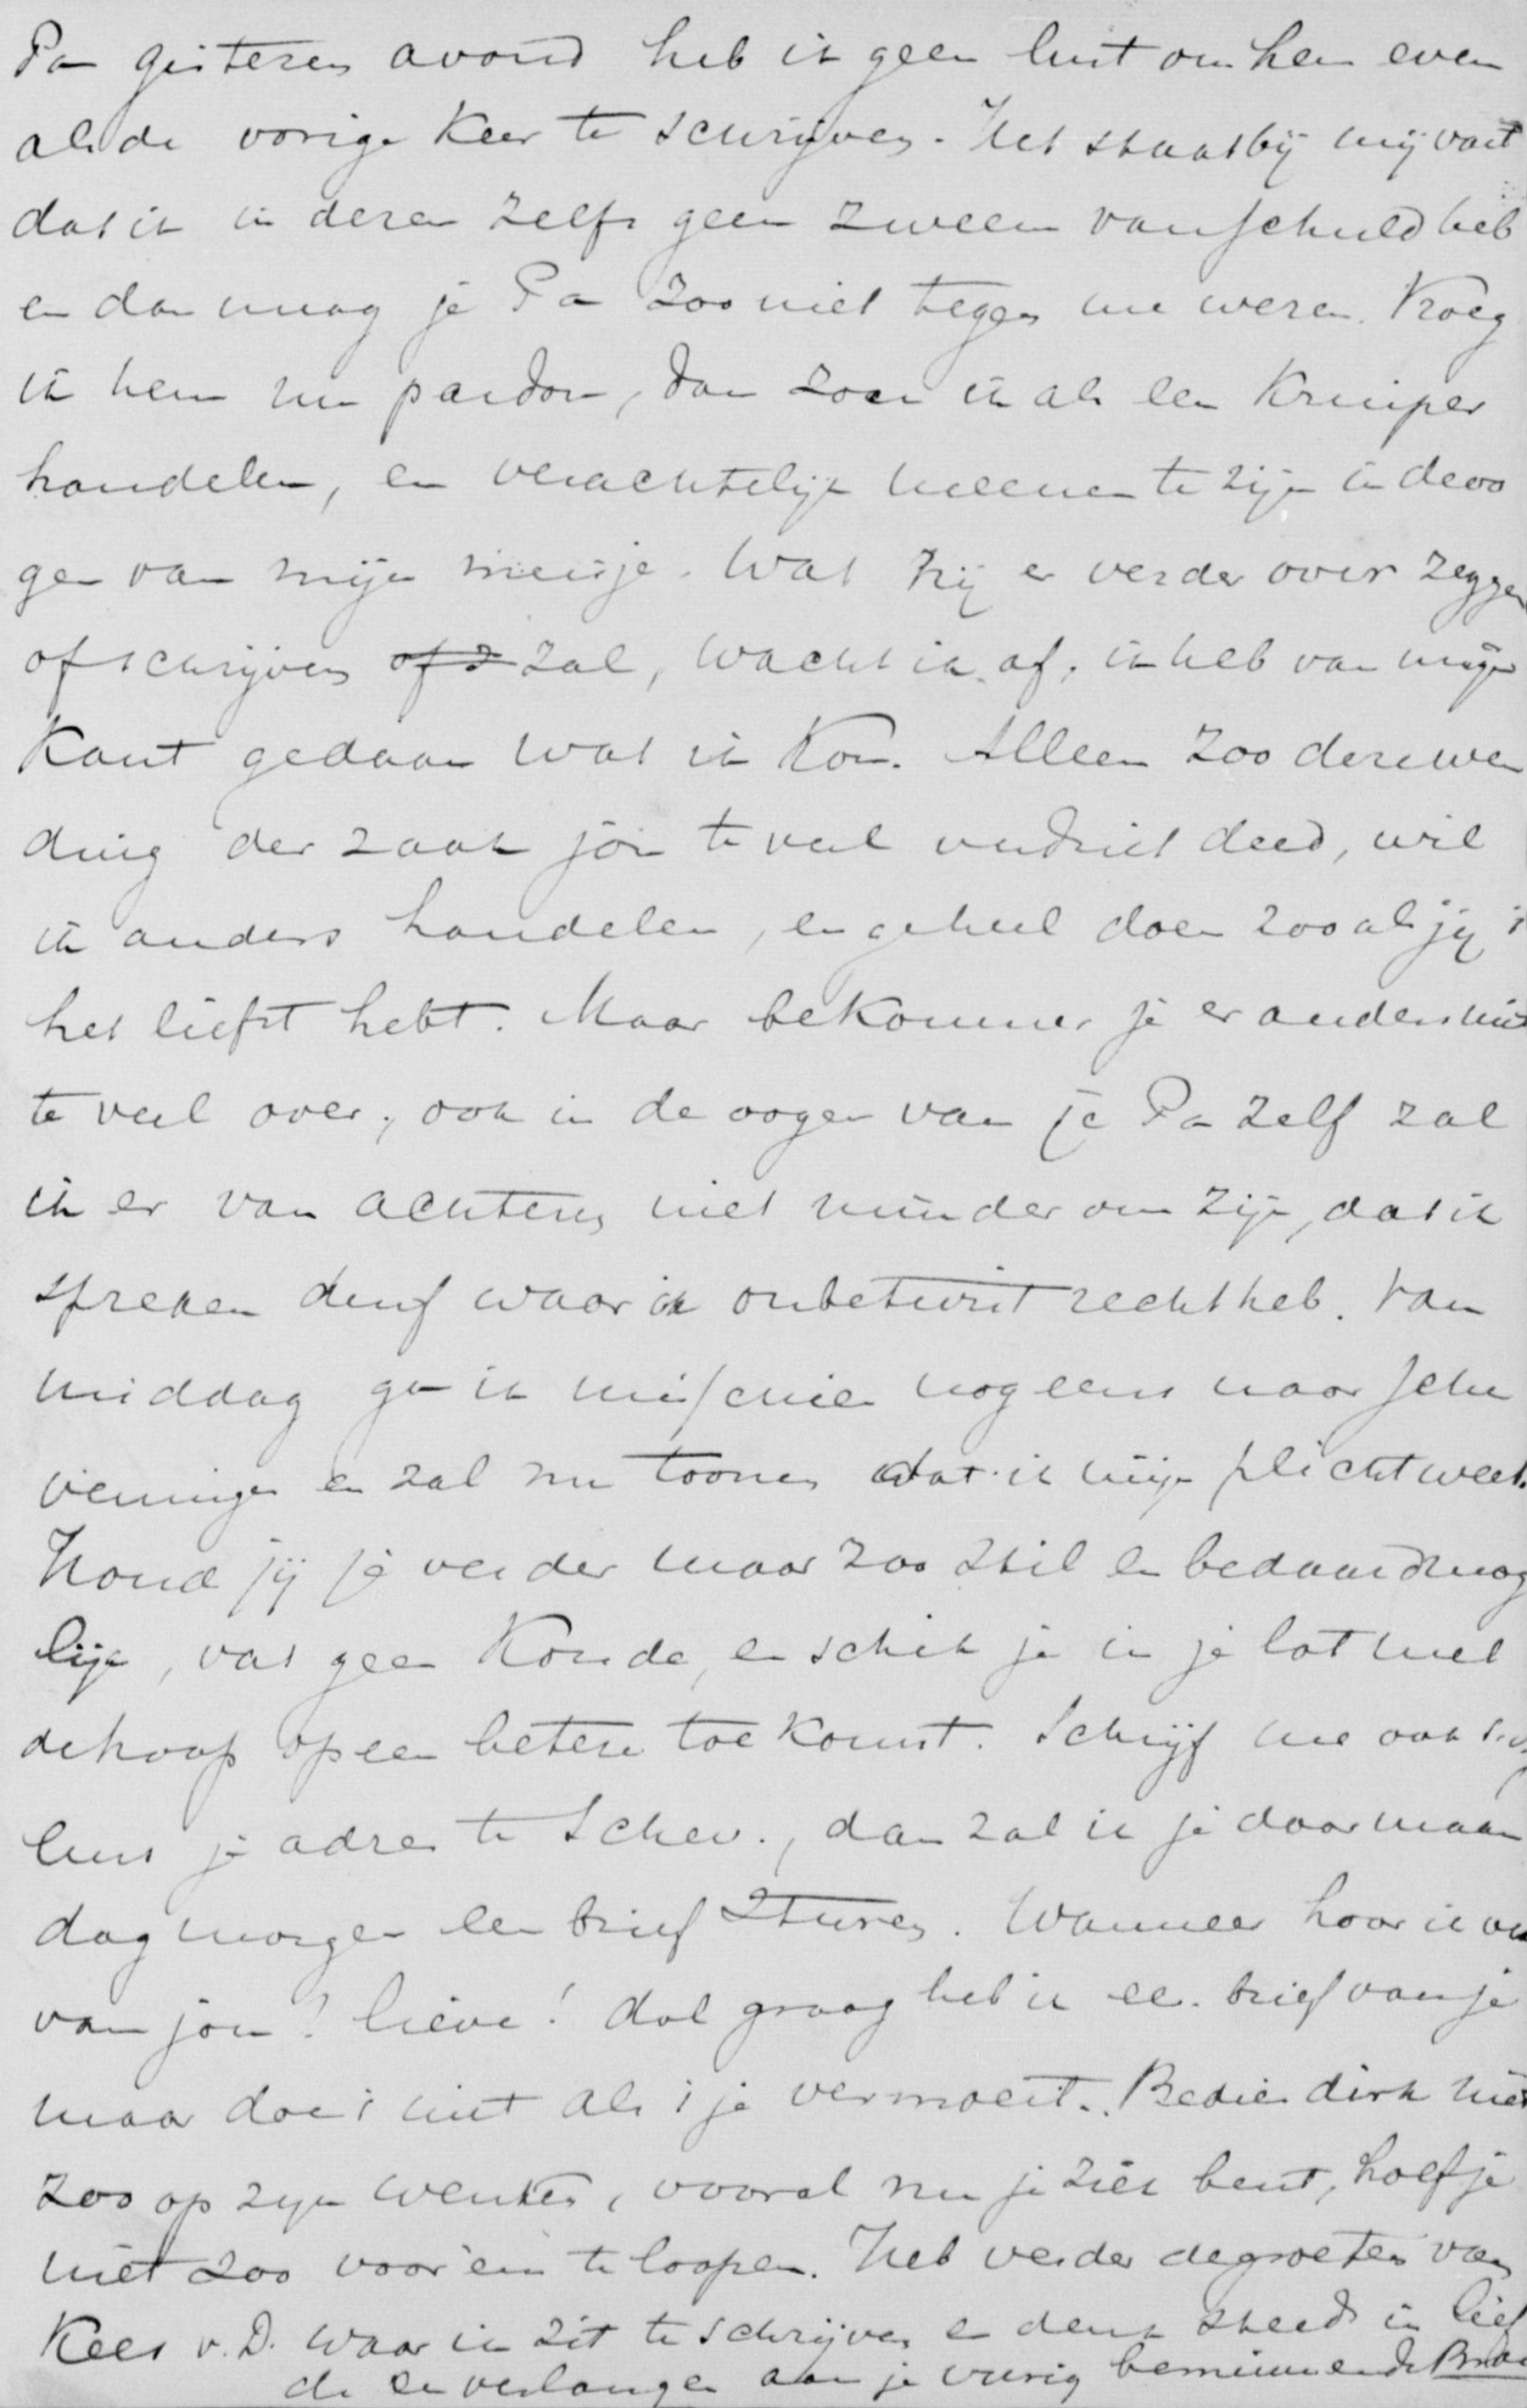 Pa gisteren avond heb ik geen lust om hem even
als de vorige keer te schrijven. Het staat bij mij vast
dat ik in dezen zelfs geen zweem van schuld heb
en dan mag je Pa zoo niet tegen me wezen. Vroeg
ik hem nu pardon, dan zou ik als een kruiper
handelen, en verachtelijk meenen te zijn in de oo
gen van mijn meisje. Wat hij er verder over zeggen
of schrijven of z zal, wacht ik af; ik heb van mijn
kant gedaan wat ik kon. Alleen zoo deze wen
ding der zaak jou te veel verdriet deed, wil
ik anders handelen, en geheel doen zooals jij 't
het liefst hebt. Maar bekommer je er anders niet
te veel over; ook in de oogen van je Pa zelf zal
ik er van achteren niet minder om zijn, dat ik
spreken durf waar ik onbetwist recht heb. Van
middag ga ik misschien nog eens naar Sche
veningen en zal nu toonen dat ik mijn plicht weet.
Houd jij je verder maar zoo stil en bedaard mog
lijk, vat geen koude, en schik je in je lot met
de hoop op een betere toekomst. Schrijf me ook
eens je adres te Schev., dan zal ik je daar maan
dag morgen een brief sturen. Wanneer hoor ik
van jou? lieve! dol graag heb ik een brief van je
maar doe 't niet als 't je vermoeit. Bedien dirk niet
zoo op zijn wenken, vooral nu je ziek bent, hoef je
niet zoo voor 'em te loopen. Heb verder de groeten van
Kees v. D. waar ik zit te schrijven en denk steeds in lief
de en verlangen aan je vurig beminnende Bram